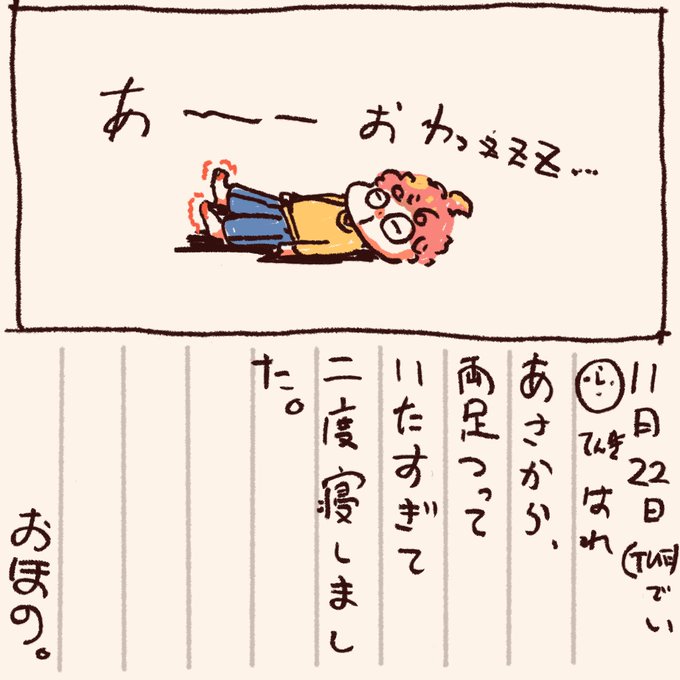 あ〜ーおわっzzZ…
11月22日(TUE)でい
てんき はれ
あさから、
両足つって
いたすぎて
二度寝しまし
た。
おほの。